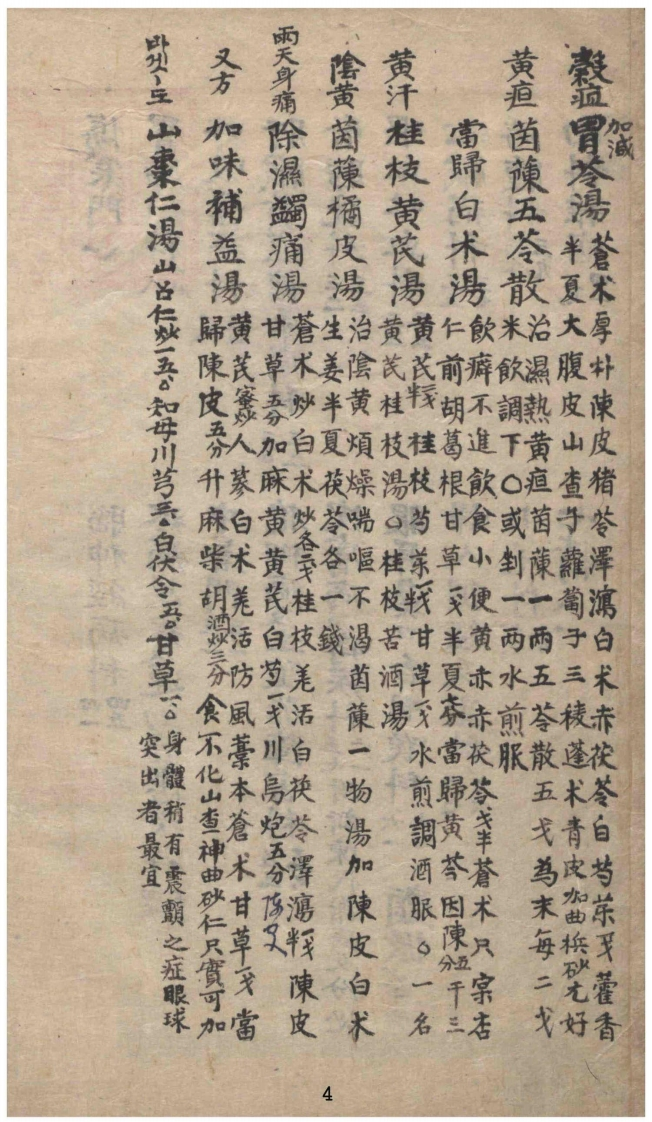 穀疸 加減胃苓湯 蒼朮厚朴陳皮猪苓澤瀉白朮赤茯苓白芍茶戈藿香
半夏大腹皮山査子蘿蔔子三稜蓬朮青皮加曲檳砂尤好
黄疸 茵蔯五苓散 治濕熱黄疸茵蔯一兩五苓散五戈為末每二戈
米飲調下〇或剉一兩水煎服
當歸白朮湯 飲癖不進飲食小便黄赤赤茯苓戈半蒼朮只宲杏
仁前胡葛根甘草戈半夏夌當歸黄芩因陳五分干三
黄汗 桂枝黄芪湯 黄芪 桂枝芍茶 甘草戈水煎調酒服〇一名
黄芪桂枝湯〇桂枝苦酒湯
陰黄 茵蔯橘皮湯 治陰黄煩燥喘嘔不渴茵蔯一物湯加陳皮白朮
生姜半夏茯苓各一錢
雨天身痛 除濕蠲痛湯 蒼朮炒白朮炒各二戈桂枝羌活白茯苓澤瀉 陳皮
甘草五分加麻黄黄芪白芍一戈川烏炮五分
又方 加味補益湯 黄芪蜜炒人蔘白朮羌活防風藁本蒼朮甘草一戈當
歸陳皮五分升麻柴胡酒炒三分 食不化山査神曲砂仁只實可加
山棗仁湯 山召仁炒一五〇知母川芎 〇白伏令五〇甘草一〇 身體稍有震顫之症眼球
突出者最宜
4